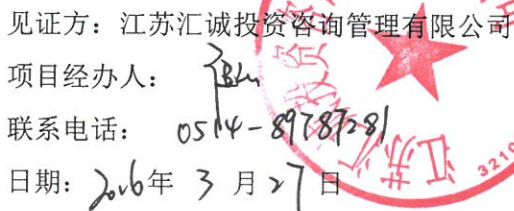 见证方：江苏汇诚投资咨询管理有限公司
项目经办人：
联系电话： 0514-89787281
日期：2016年 3 月 27 日
江苏汇 投资咨
3210